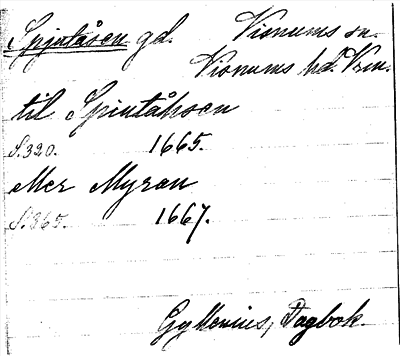 Spjutåsen gd. Visnums sn.
Visnums hd. Vrm.
til Spiutåhsen
S. 320. 1665.
eller Myran
S. 365. 1667.
Gyllenius, Dagbok.